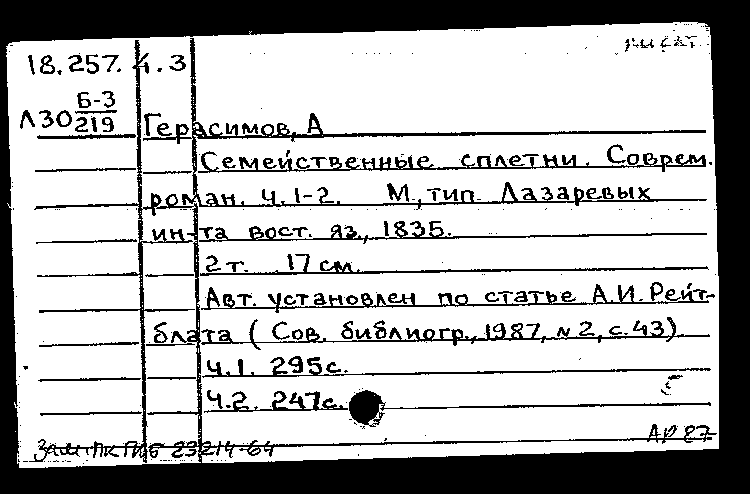 18.257.4.3
Л30 Б-3/219
Герасимов, А
Семейственные сплетни. Соврем.
роман. Ч.1-2. М., тип. Лазаревых
ин-та вост. яз., 1835.
2 т. 17 см.
Авт. установлен по статье А.И. Рейт-
блата (Сов. библиогр., 1987, № 2, с.43)
Ч.1. 295с.
Ч.2. 247с.
АР 87